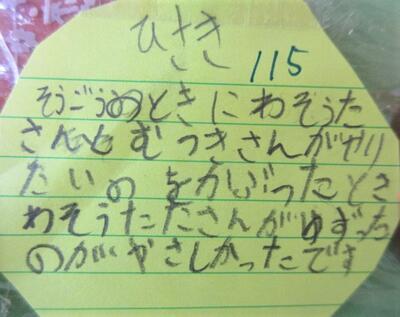 ひさき
115
そうごうのときにわそうた
さんとむつきさんがやり
たいのをかぶったとき
わそうたたさんがゆずった
のがやさしかったです